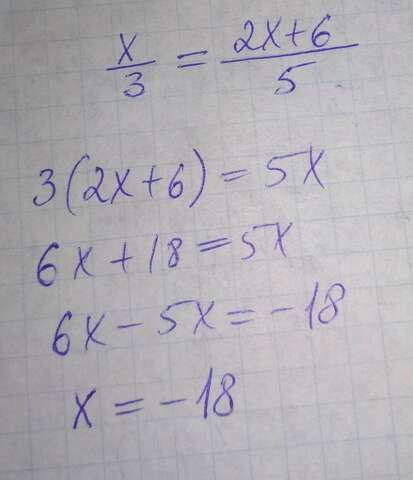 x/3 = (2x+6)/5
3(2x+6) = 5x
6x + 18 = 5x
6x - 5x = -18
x = -18